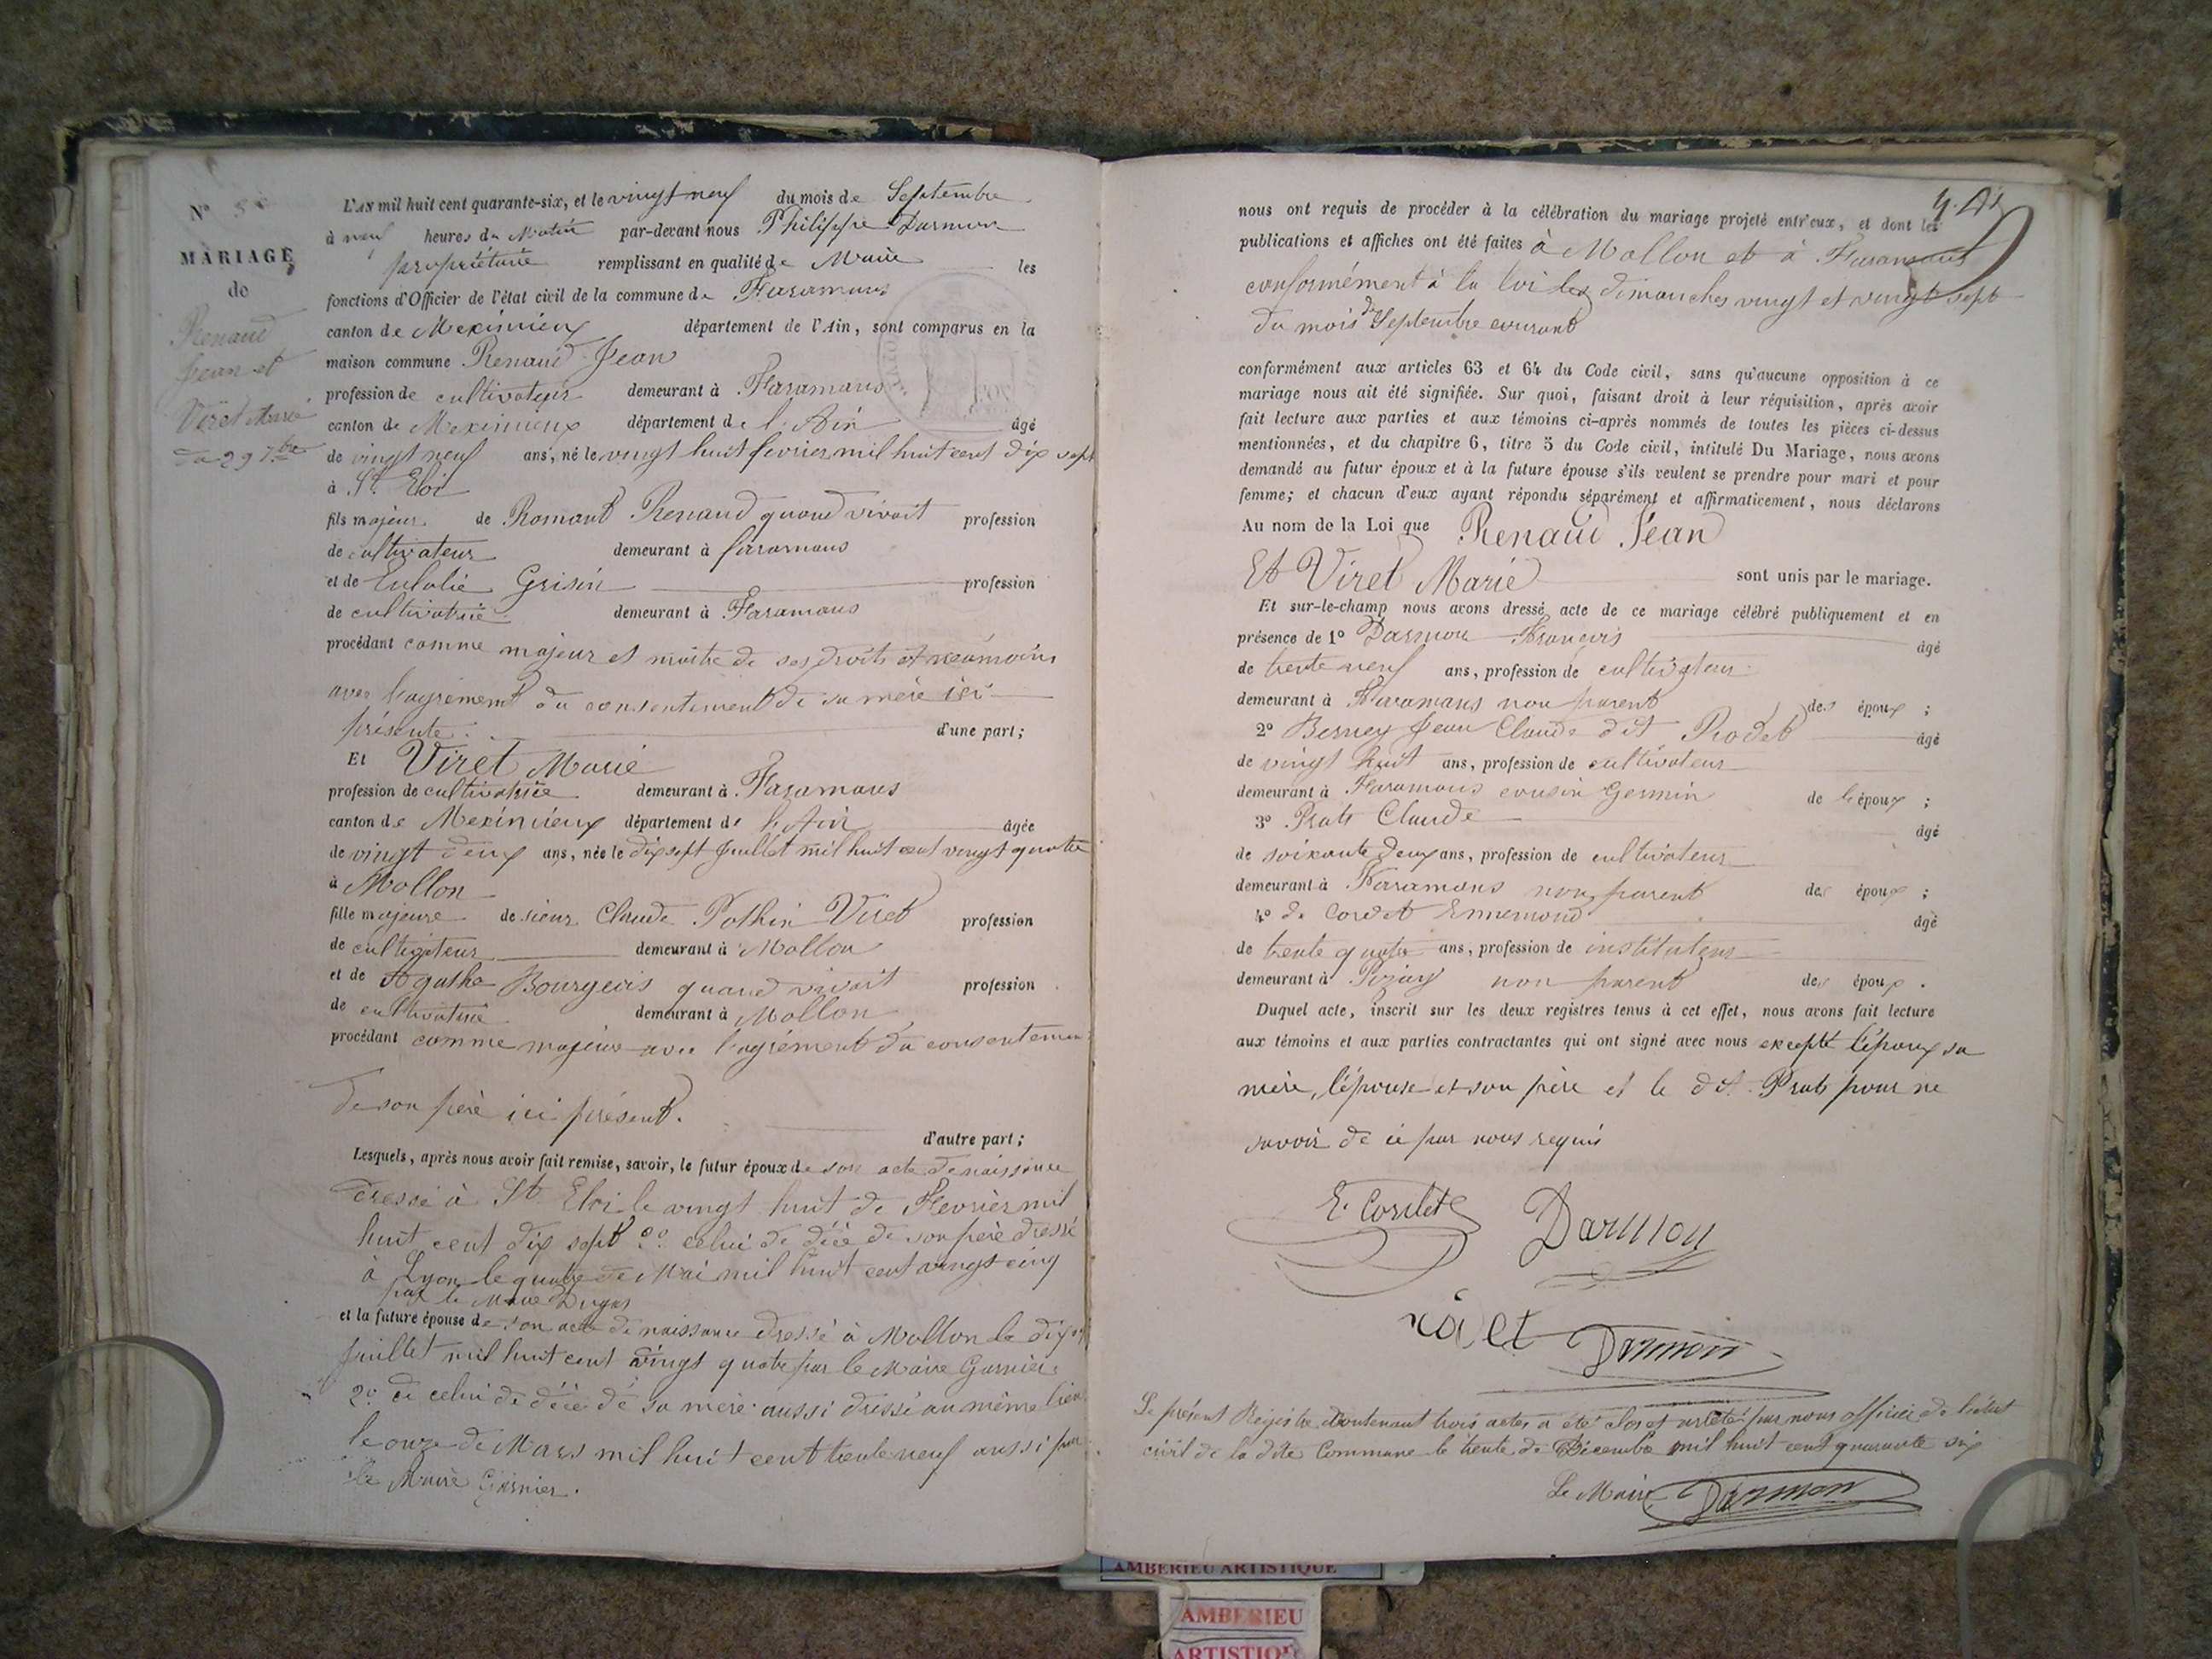 N° 3e
MARIAGE
de
Renaud
Jean et
Viret Marie
du 29 7bre
L'AN mil huit cent quarante-six, et le vingt neuf du mois de Septembre
à neuf heures du Matin par-devant nous Philippe Darmon
propriétaire remplissant en qualité de Maire les
fonctions d'Officier de l'état civil de la commune de Faramans
canton de Meximieux département de l'Ain, sont comparus en la
maison commune Renaud Jean
profession de cultivateur demeurant à Faramans
canton de Meximieux département de l'Ain âgé
de vingt neuf ans, né le vingt huit fevrier mil huit cent dix sept
à St. Eloi
fils majeur de Romant Renaud quand vivait profession
de cultivateur demeurant à faramans
et de Eulalie Grisin profession
de cultivatrice demeurant à Faramans
procédant comme majeur et maitre de ses droits et néanmoins
avec l'agrément du consentement de sa mère ici
présente. d'une part;
Et Viret Marie
profession de cultivatrice demeurant à Faramans
canton de Meximieux département de l'Ain âgée
de vingt deux ans, née le dix sept juillet mil huit cent vingt quatre
à Mollon
fille majeure de sieur Claude Pothin Viret profession
de cultivateur demeurant à Mollon
et de Agathe Bourgeois quand vivait profession
de cultivatrice demeurant à Mollon
procédant comme majeur avec l'agrément du consentemen
de son père ici présent.
d'autre part;
Lesquels, après nous avoir fait remise, savoir, le futur époux de son acte de naissance
dressé à St. Eloi le vingt huit de Fevrier mil
huit cent dix sept celui de décè de son père dressé
à Lyon le quatre de Mai mil huit cent vingt cinq
par le Maire Dugas
et la future épouse de son acte de naissance dressé à Mollon le dix sept
juillet mil huit cent vingt quatre par le Maire Garnier
2° de celui de décè de sa mère aussi dressé au même lieu
le onze de Mars mil huit cent trente neuf aussi par
le Maire Garnier.
nous ont requis de procéder à la célébration du mariage projeté entr'eux, et dont les
publications et affiches ont été faites à Mollon et à Faramans
conformément à la loi les dimanches vingt et vingt sept
du mois de Septembre courant
conformément aux articles 63 et 64 du Code civil, sans qu'aucune opposition à ce
mariage nous ait été signifiée. Sur quoi, faisant droit à leur réquisition, après avoir
fait lecture aux parties et aux témoins ci-après nommés de toutes les pièces ci-dessus
mentionnées, et du chapitre 6, titre 5 du Code civil, intitulé Du Mariage, nous avons
demandé au futur époux et à la future épouse s'ils veulent se prendre pour mari et pour
femme; et chacun d'eux ayant répondu séparément et affirmativement, nous déclarons
Au nom de la Loi que Renaud Jean
Et Viret Marie sont unis par le mariage.
Et sur-le-champ nous avons dressé acte de ce mariage célébré publiquement et en
présence de 1° Darmon François âgé
de trente neuf ans, profession de cultivateur
demeurant à Faramans non parent des époux ;
2° Berney Jean Claude dit Rodet âgé
de vingt huit ans, profession de cultivateur
demeurant à Faramans cousin Germin de l'époux ;
3° Prat Claude âgé
de soixante deux ans, profession de cultivateur
demeurant à Faramans non parent des époux ;
4° de Cordet Ennemond âgé
de trente quatre ans, profession de instituteur
demeurant à non parent des époux.
Duquel acte, inscrit sur les deux registres tenus à cet effet, nous avons fait lecture
aux témoins et aux parties contractantes qui ont signé avec nous excepté l'époux sa
mère, l'épouse et son père et le dit Prat pour ne
savoir de ce par nous requis
E. Cordet Darmon
Darmon
Le présent Régistre contenant trois actes a été clos et arrêté par nous officier de l'état
civil de la dite Commune le trente de Décembre mil huit cent quarante six
Le Maire Darmon
AMBERIEU ARTISTIQUE
AMBERIEU
ARTISTIQUE